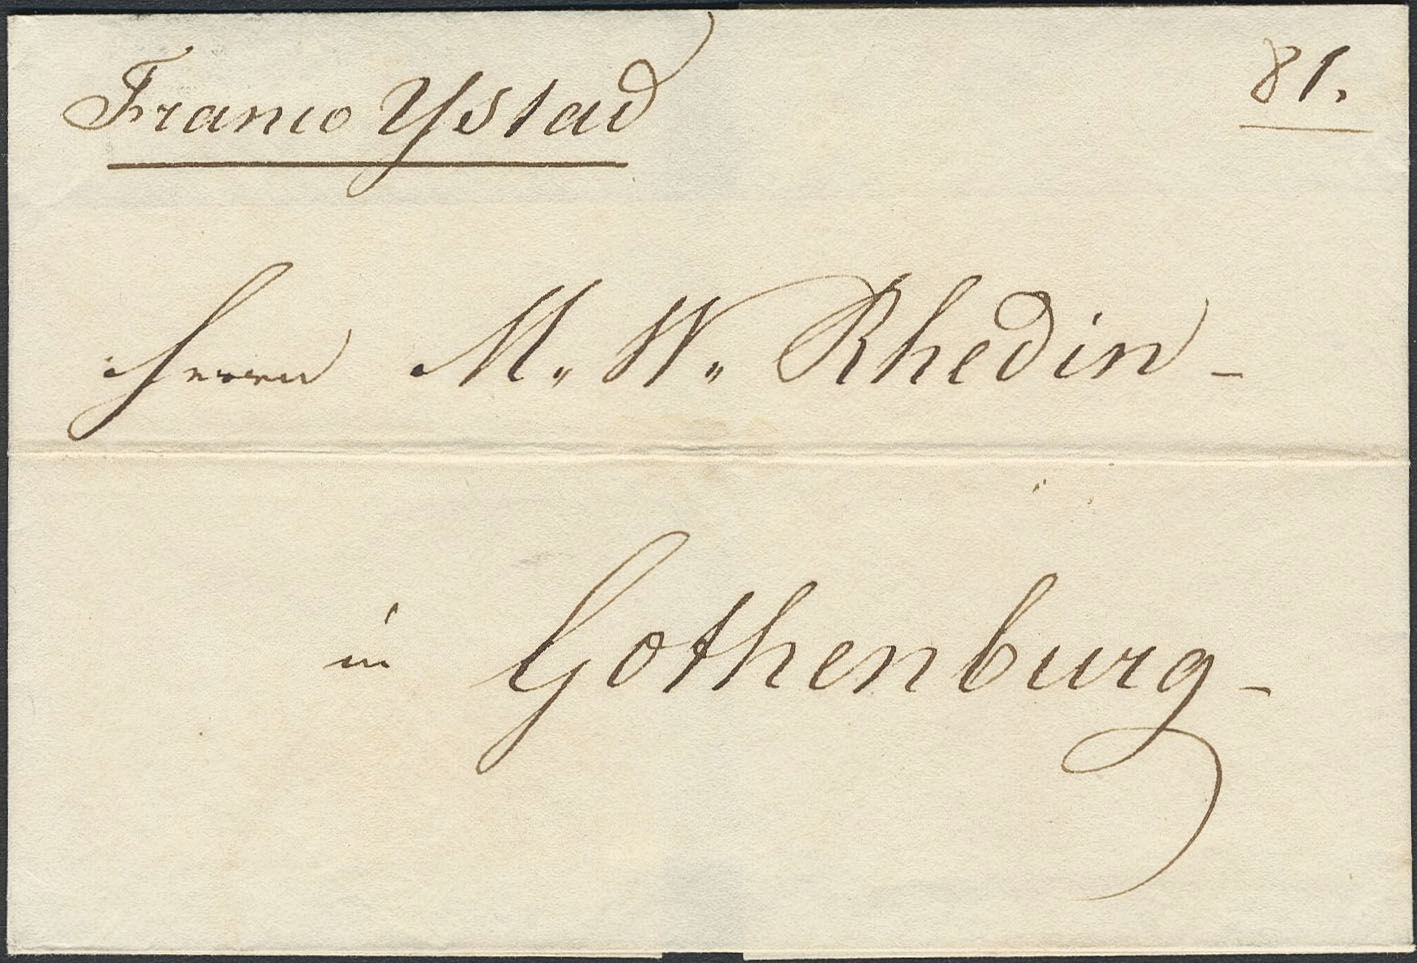 Franco Ystad
81.
Herrn M. W. Rhedin -
in Gothenburg -